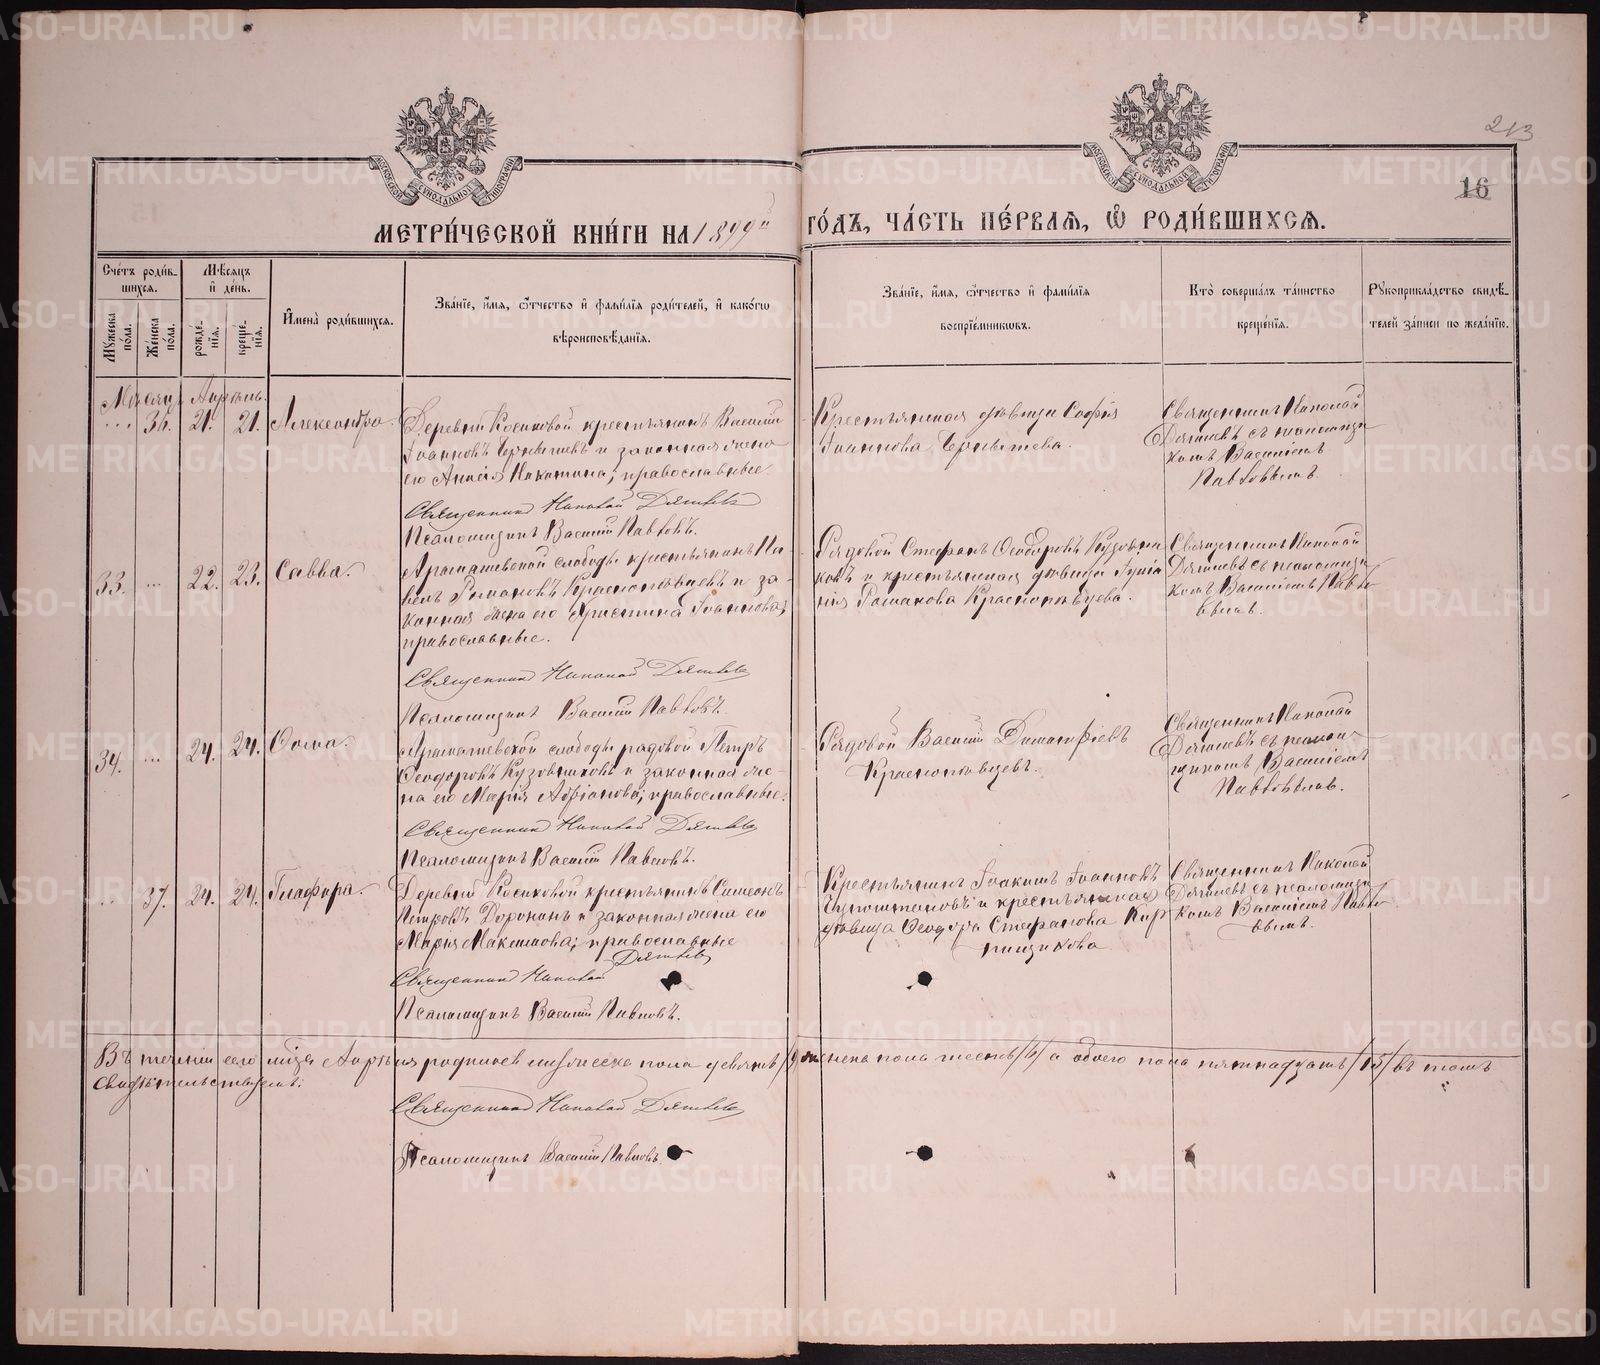 213
16
МОСКОВСКОЙ СѴНОДАЛЬНОЙ ТИПОГРАФІИ
МОСКОВСКОЙ СѴНОДАЛЬНОЙ ТИПОГРАФІИ
МЕТРИ́ЧЕСКОЙ КНИ́ГИ НА 1899й ГО́ДЪ, ЧА́СТЬ ПЕ́РВАѦ, Ѡ҆ РОДИ́ВШИХСѦ.
Сче́тъ роди́в-
шихсѧ.
Мꙋ́жеска по́ла.
Же́нска по́ла.
Мѣ́сѧцъ и҆ де́нь.
рожде́-
нїѧ.
креще́-
нїѧ.
И҆мена̀ роди́вшихсѧ.
Зва́нїе, и҆́мѧ, ѻ҆́тчество и҆ фами́лїѧ роди́телей, и҆ како́гѡ
вѣроисповѣ́данїѧ.
Зва́нїе, и҆́мѧ, ѻ҆́тчество и҆ фами́лїѧ
воспрїе́мникѡвъ.
Кто̀ соверша́лъ та́инство
креще́нїѧ.
Рꙋкоприкла́дство свидѣ́-
телей за́писи по жела́нїю.
Мѣсяцъ Апрѣль.
... 36. 21. 21. Александра.
Деревни Косиковой крестьянинъ Василій
Іоанновъ Чернышевъ и законная жена
его Анисія Никитина; православные
Священникъ Николай Дягилевъ
Псаломщикъ Василій Павловъ.
Крестьянская дѣвица Софія
Іоаннова Чернышева.
Священникъ Николай
Дягилевъ съ псаломщи
комъ Василіемъ
Павловымъ.
33. ... 22. 23. Савва.
Арамашевской слободы крестьянинъ Па-
велъ Романовъ Краснопѣвцевъ и за-
конная жена его Христина Іоаннова;
православные.
Священникъ Николай Дягилевъ
Псаломщикъ Василій Павловъ.
Рядовой Стефанъ Ѳеодоровъ Кузовни
ковъ и крестьянская дѣвица
Романова Краснопѣвцева.
Священникъ Николай
Дягилевъ съ псаломщи
комъ Василіемъ Павло
вымъ.
34. ... 24. 24. Ѳома.
Арамашевской слободы рядовой Петръ
Ѳеодоровъ Кузовниковъ и законная же-
на его Марія Адріанова; православные.
Священникъ Николай Дягилевъ
Псаломщикъ Василій Павловъ.
Рядовой Василій Доримедонтовъ
Краснопѣвцевъ.
Священникъ Николай
Дягилевъ съ псалом-
щикомъ Василіемъ
Павловымъ.
... 37. 24. 24. Глафира.
Деревни Косиковой крестьянинъ Симеонъ
Петровъ Доронинъ и законная жена его
Марія Максимова; православные
Священникъ Николай Дягилевъ
Псаломщикъ Василій Павловъ.
Крестьянинъ Іоакимъ Іоанновъ
и крестьянская
дѣвица Ѳеодора Стефанова Кир
пищикова
Священникъ Николай
Дягилевъ съ псаломщи
комъ Василіемъ Павло
вымъ.
Въ теченіи сего мѣсяца Апрѣля родилось мужеска пола девять /9/ женска пола шесть /6/ а обоего пола пятнадцать /15/ въ томъ
свидѣтельствуемъ:
Священникъ Николай Дягилевъ
Псаломщикъ Василій Павловъ.
METRIKI.GASO-URAL.RU